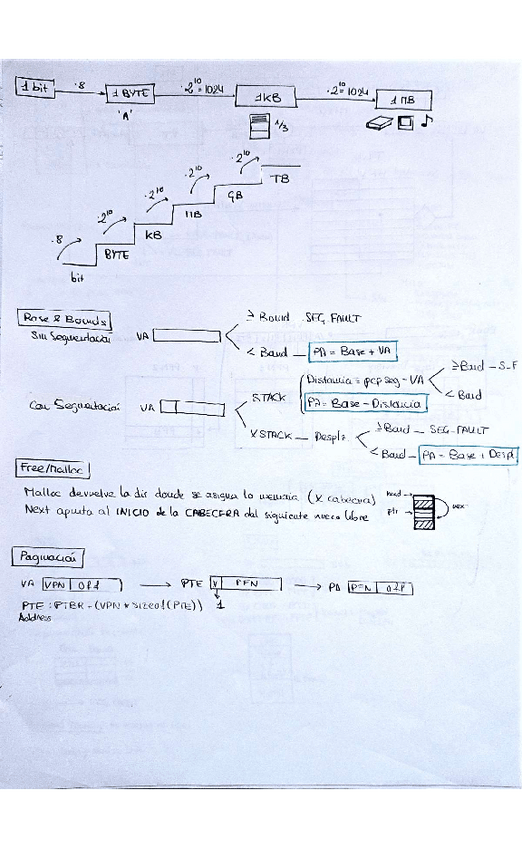 1 bit .8 1 BYTE .2¹⁰=1024 1KB .2¹⁰=1024 1 MB
'A' 1/3
.8 .2¹⁰ .2¹⁰ .2¹⁰ .2¹⁰
bit BYTE KB MB GB TB
Base & Bounds
Sin Segmentación VA ≥ Bound _ SEG. FAULT
< Bound _ PA = Base + VA
Con Segmentación VA STACK Distancia = pcp seg - VA ≥ Bound _ S-F
< Bound
PA = Base - Distancia
X STACK _ Desplz ≥ Bound _ SEG-FAULT
< Bound _ PA = Base + Despl
Free/Malloc
Malloc devuelve la dir donde se asigna la memoria (X cabecera) head
Next apunta al INICIO de la CABECERA del siguiente nuevo libre ptr
Paginación
VA VPN Off → PTE V PFN → PA PFN Off
PTE : PTBR - (VPN * sizeof(PTE)) 1
Address